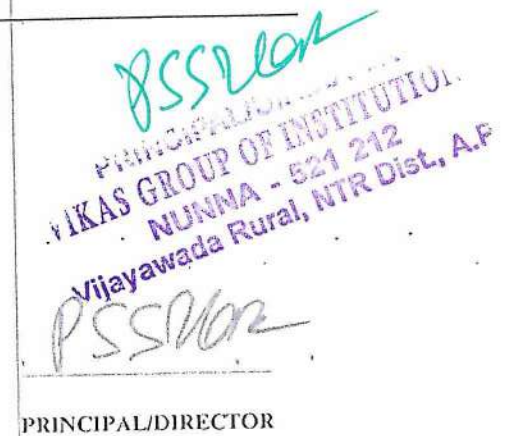 PRINCIPAL/DIRECTOR
VIKAS GROUP OF INSTITUTION
NUNNA - 521 212
Vijayawada Rural, NTR Dist., A.P
PRINCIPAL/DIRECTOR